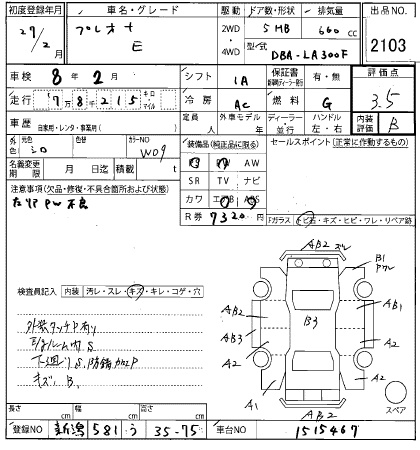 初度登録年月 車名・グレード 駆動 ドア数・形状 排気量 出品NO.
27/2月 プレオ+ 2WD 5 HB 660 cc
E 4WD 型式 DBA-LA300F 2103
車検 8年 2月 シフト IA 保証書 有・無 評価点
走行 7万8千215 キロ マイル 冷房 AC 燃料 G 3.5
車歴 自家用・レンタ・事業用( ) 定員 人 外車モデル 年式 ディーラー・並行 ハンドル 左・右 内装評価 B
外色 元色 シロ 色替 カラーNO W09 装備品(純正品に限る) セールスポイント(正常に作動するもの)
PS PW AW
名義変更期限 月 日 積載 t SR TV ナビ
注意事項(欠品・修復・不具合箇所および状態) カワ エアB ABS
左リア PW 不良 R券 7320 円
Fガラス トビ石・キズ・ヒビ・ワレ・リペア跡
検査員記入 内装 汚レ・スレ・キズ・キレ・コゲ・穴
外装タッチPあり
E/gルーム内 S
下廻り S, 防錆加工P
キズ B.
AB2
B1
AB2
AB3
B3
AB1
A2
A2
A2
A2
A1
AB2
スペア
長さ cm 幅 cm 高さ cm
登録NO 新潟 581 う 35-75 車台NO 1515467